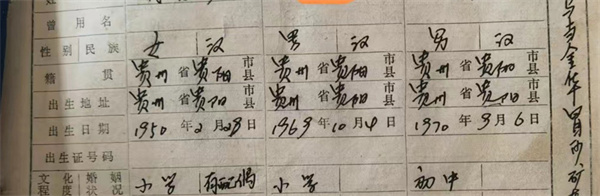 曾用名
性别民族 女 汉 男 汉 男 汉
籍贯 贵州省贵阳市县 贵州省贵阳市县 贵州省贵阳市县
出生地址 贵州省贵阳市县 贵州省贵阳市县 贵州省贵阳市县
出生日期 1950年2月28日 1969年10月4日 1970年9月6日
出生证号码
文化程度 婚姻状况 小学 有配偶 小学 初中
金华